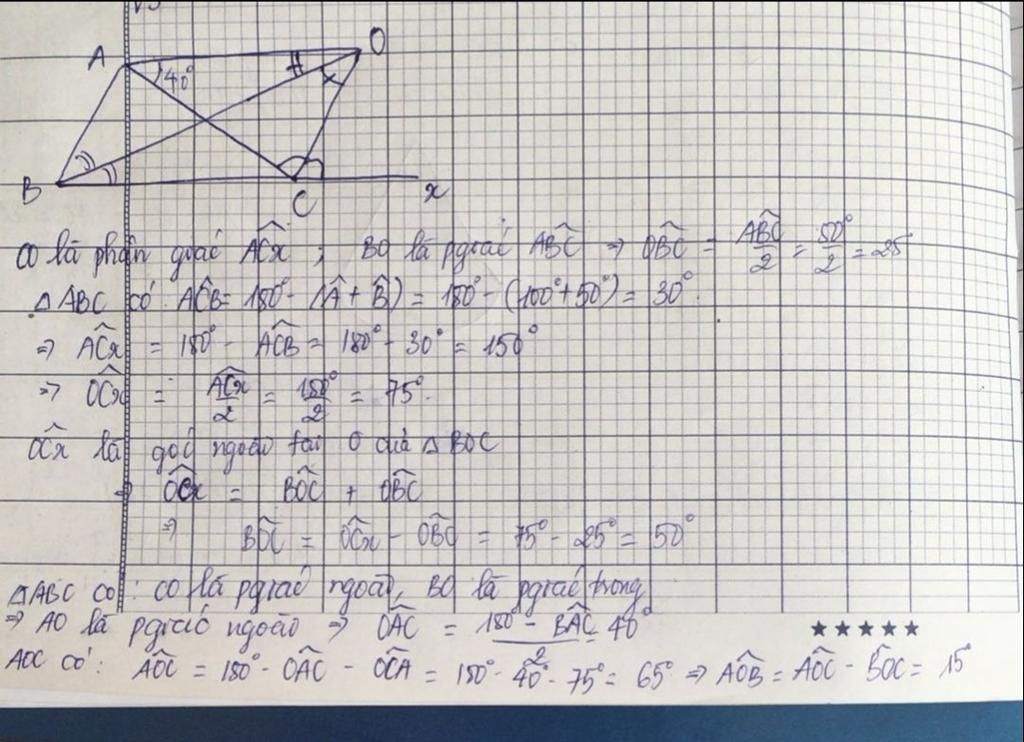 A
O
40°
B
C
x
CO là phân giác ACx ; BO là pgiác ABC ⇒ OBC = ABC/2 = 50°/2 = 25
△ABC có ACB = 180° - (A + B) = 180° - (100° + 50°) = 30°.
⇒ ACx = 180° - ACB = 180° - 30° = 150°
⇒ OCx = ACx/2 = 150°/2 = 75°.
OCx là góc ngoài tại O của △BOC
⇒ OCx = BOC + OBC
⇒ BOC = OCx - OBC = 75° - 25° = 50°
△ABC có: CO là pgiác ngoài, BO là pgiác trong
⇒ AO là pgiác ngoài ⇒ OAC = (180 - BAC)/2 = 40°
AOC có: AOC = 180° - OAC - OCA = 180° - 40° - 75° = 65° ⇒ AOB = AOC - BOC = 15°